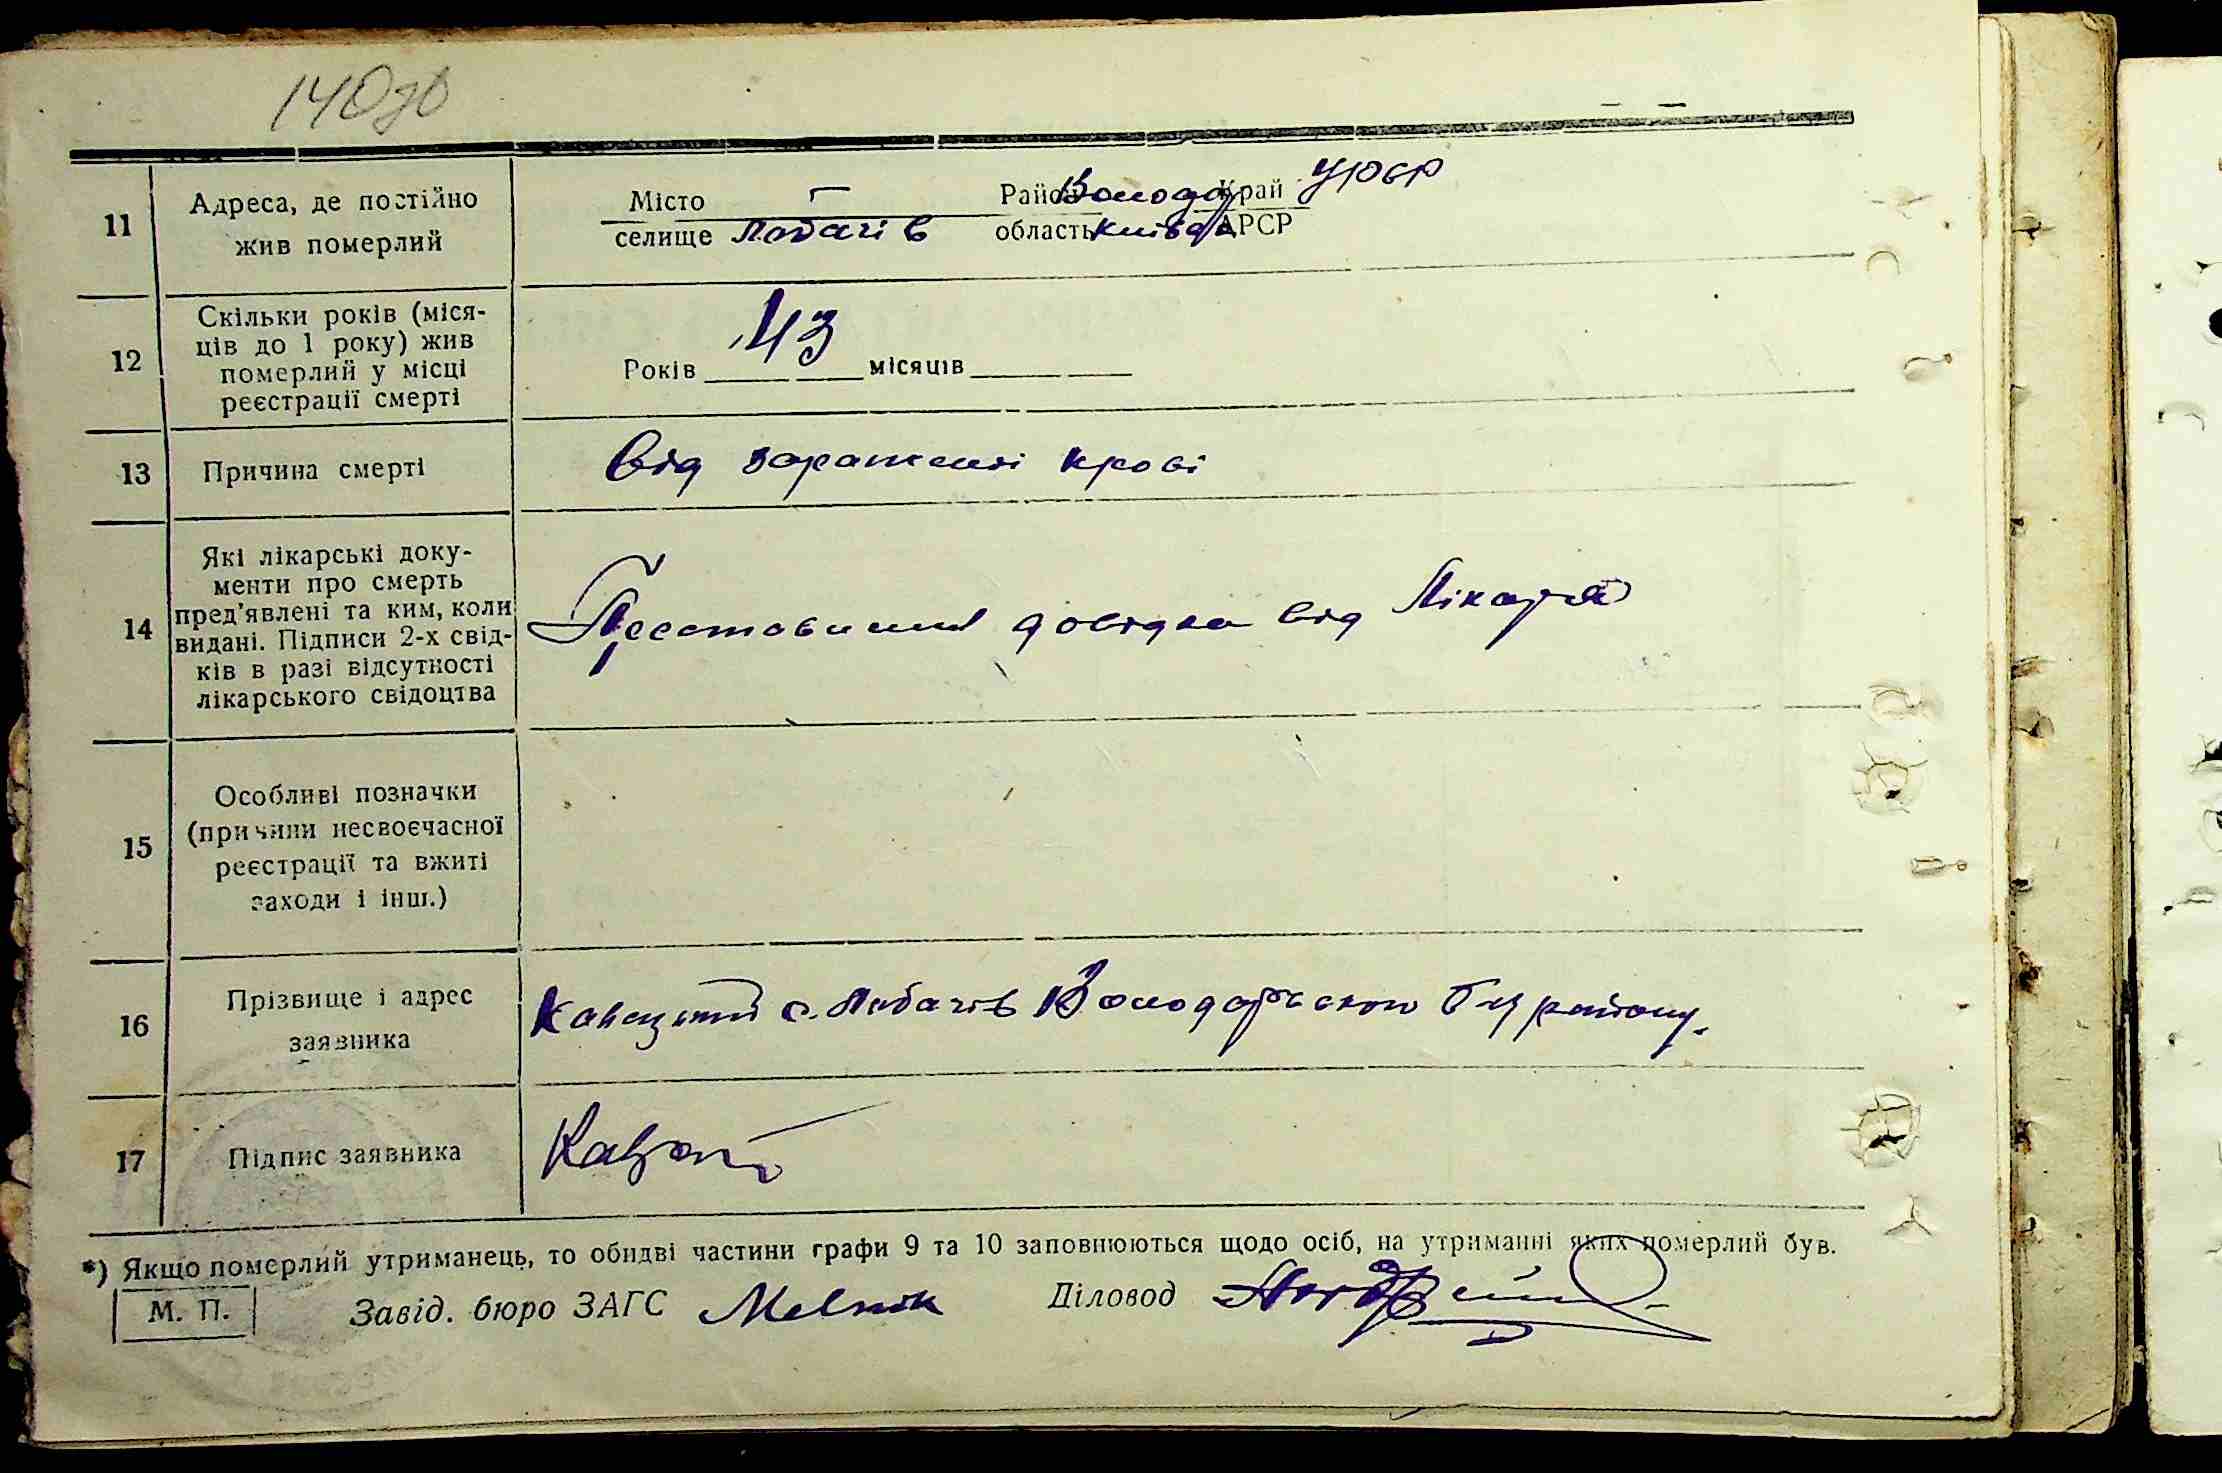 140зв
11
Адреса, де постійно
жив померлий
Місто — Район Володар Край УРСР
селище Лобачів область Київська АРСР
12
Скільки років (міся-
ців до 1 року) жив
померлий у місці
реєстрації смерті
Років 43 місяців
13
Причина смерті
Від зараженні крові
14
Які лікарські доку-
менти про смерть
пред’явлені та ким, коли
видані. Підписи 2-х свід-
ків в разі відсутності
лікарського свідоцтва
довідка від Лікаря
15
Особливі позначки
(причини несвоєчасної
реєстрації та вжиті
заходи і інш.)
16
Прізвище і адрес
заявника
с. Лобачів Володарського району.
17
Підпис заявника
*) Якщо померлий утриманець, то обидві частини графи 9 та 10 заповнюються щодо осіб, на утриманні яких померлий був.
М. П.
Завід. бюро ЗАГС Melnik Діловод